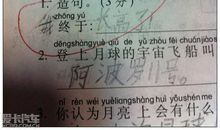 1. 造句。(3分)
zhōng yú
终于:长高了
dēngshàngyuè qiú de yǔ zhòu fēi chuánjiào
2. 登上月球的宇宙飞船叫
阿波罗
nǐ rèn wéi yuèliangshàng huì yǒushén me
3. 你认为月亮上会有什么